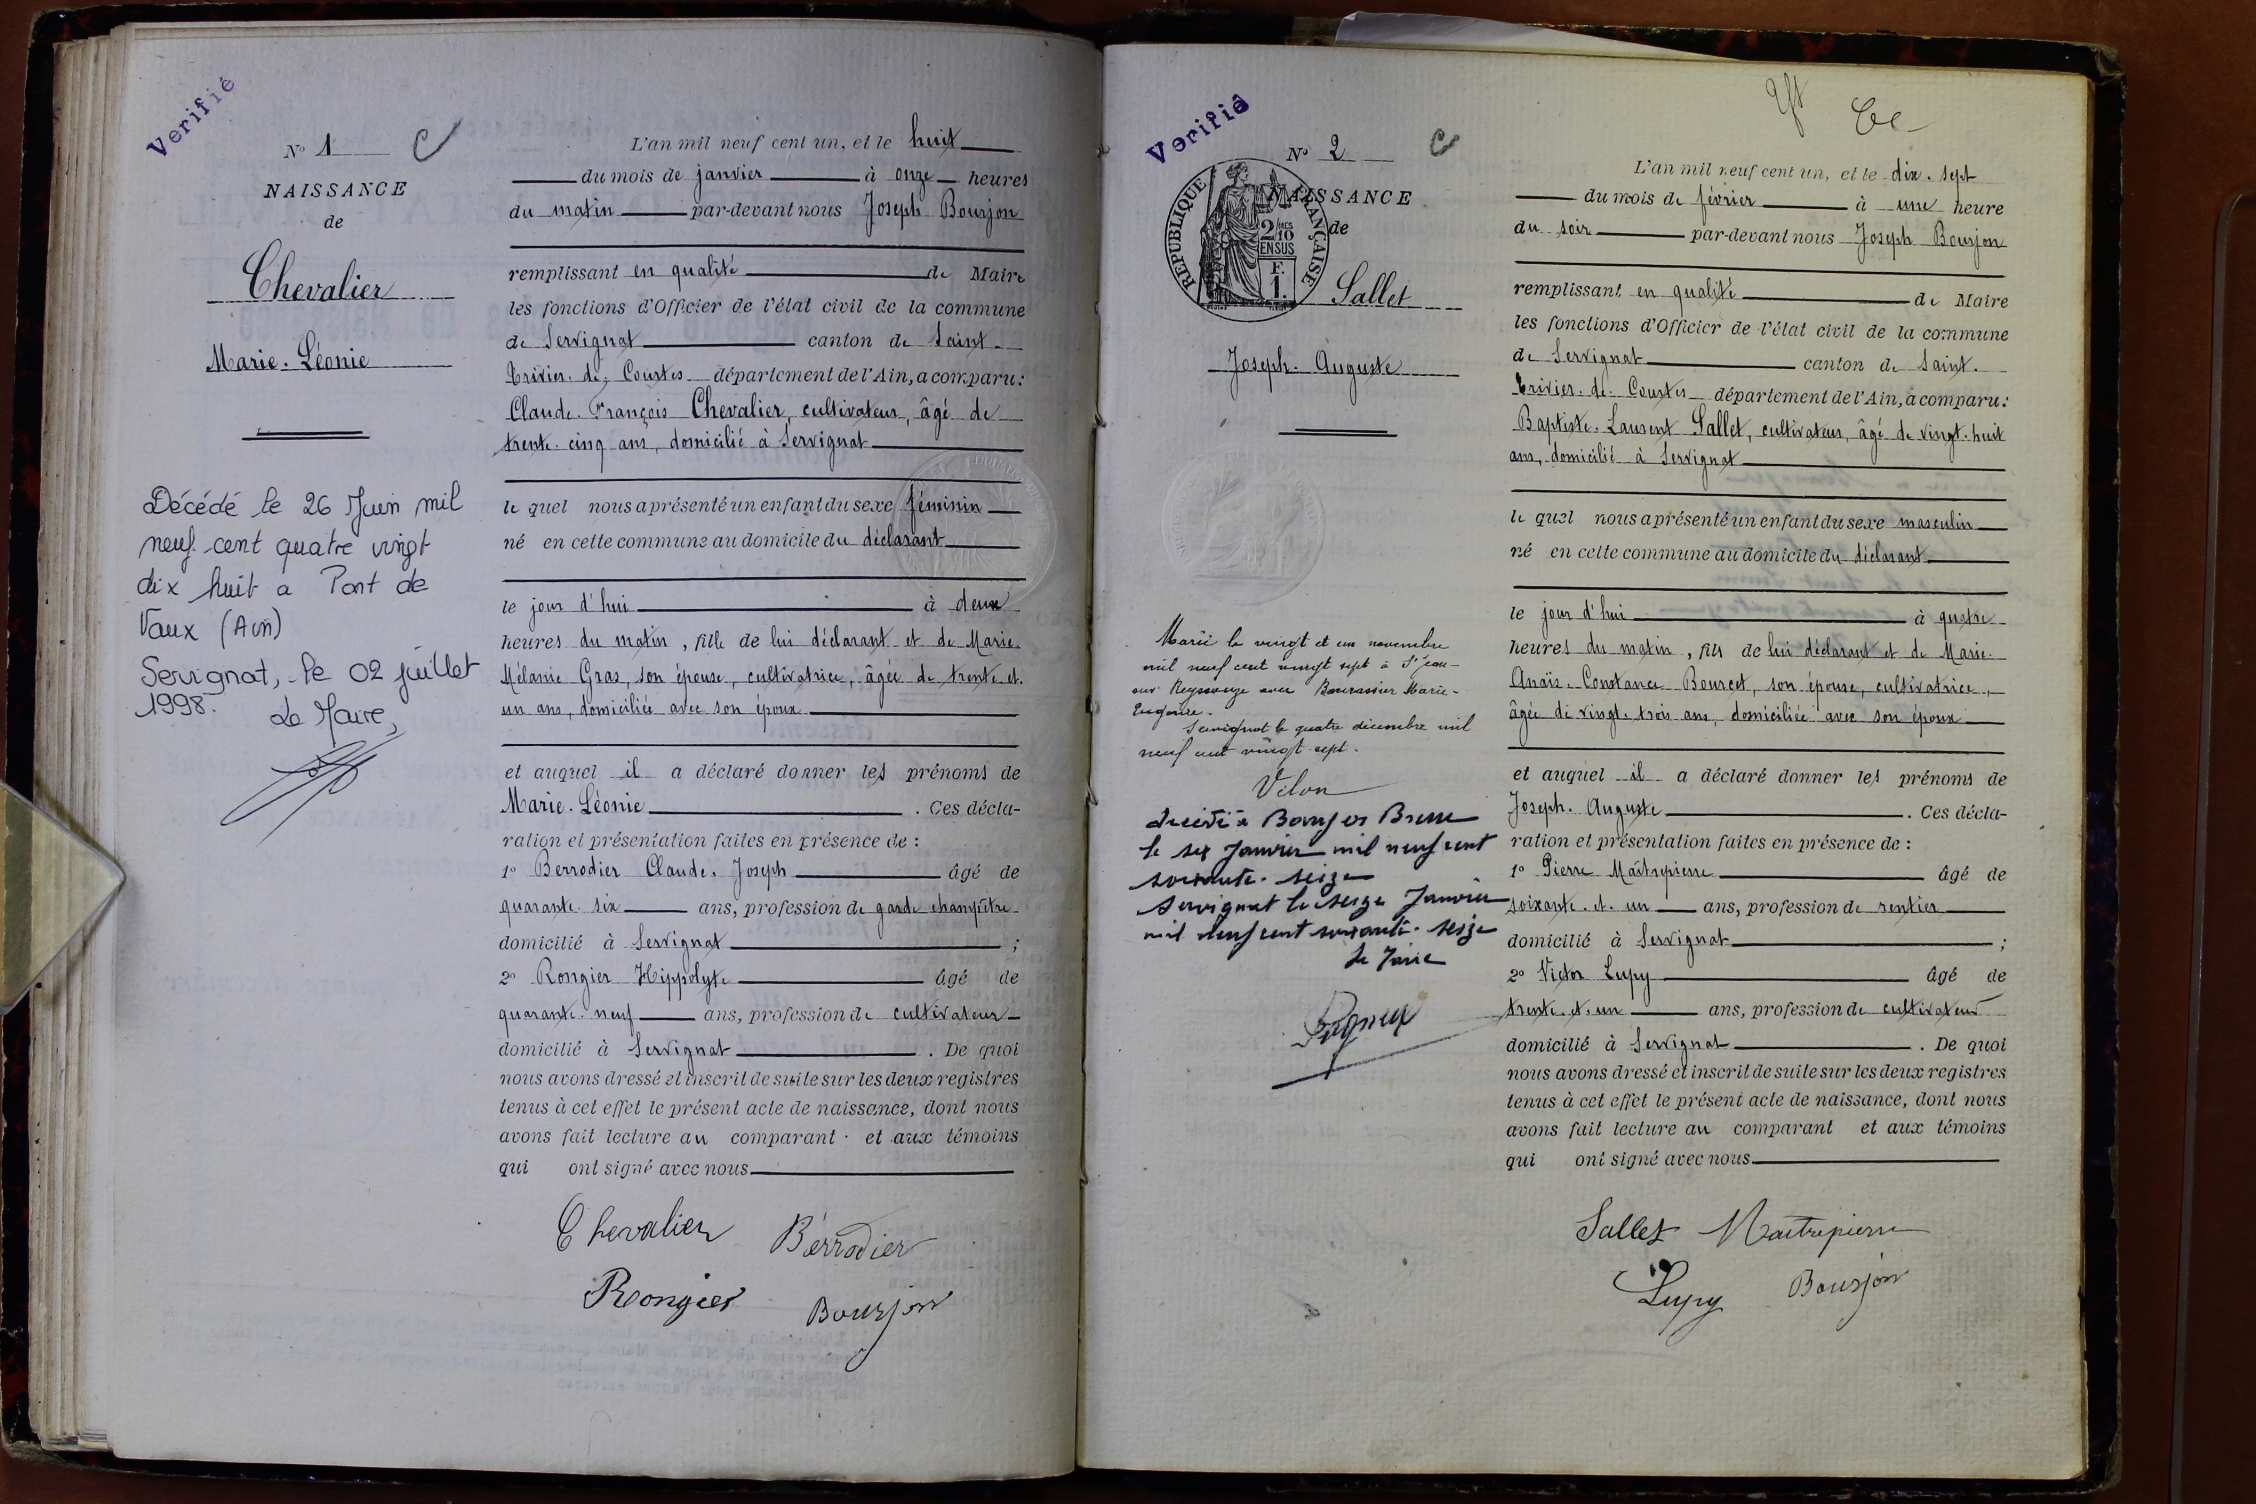 Verifié
N° 1 C
NAISSANCE
de
Chevalier
Marie-Léonie
Décédé le 26 Juin mil
neuf cent quatre vingt
dix huit a Pont de
Vaux (Ain)
Servignat, le 02 juillet
1998.
Le Maire,
L'an mil neuf cent un, et le huit
du mois de janvier à onze heures
du matin par-devant nous Joseph Bourjon
remplissant en qualité de Maire
les fonctions d'Officier de l'état civil de la commune
de Servignat canton de Saint-
Trivier-de-Courtes département de l'Ain, a comparu:
Claude-François Chevalier, cultivateur, âgé de
trente-cinq ans, domicilié à Servignat
le quel nous a présenté un enfant du sexe féminin
né en cette commune au domicile du déclarant
le jour d'hui à deux
heures du matin, fille de lui déclarant et de Marie-
Mélanie Gras, son épouse, cultivatrice, âgée de trente-et-
un ans, domiciliée avec son époux
et auquel il a déclaré donner les prénoms de
Marie-Léonie. Ces décla-
ration et présentation faites en présence de :
1° Berrodier Claude-Joseph âgé de
quarante-six ans, profession de garde champêtre
domicilié à Servignat ;
2° Rongier Hippolyte âgé de
quarante-neuf ans, profession de cultivateur
domicilié à Servignat. De quoi
nous avons dressé et inscrit de suite sur les deux registres
tenus à cet effet le présent acte de naissance, dont nous
avons fait lecture au comparant et aux témoins
qui ont signé avec nous
Chevalier Berrodier
Rongier Bourjon
Verifié
N° 2 C
NAISSANCE
de
REPUBLIQUE FRANÇAISE
2/10
EN SUS
F.
1.
Sallet
Joseph-Auguste
Marié le vingt et un novembre
mil neuf cent vingt sept à St Jean-
sur Reyssouze avec Marie-
Eugénie.
Servignat le quatre décembre mil
neuf cent vingt sept.
Vélon
décédé à Bourg en Bresse
le six Janvier mil neuf cent
soixante-seize
Servignat le seize Janvier
mil neuf cent soixante-seize
Le Maire
L'an mil neuf cent un, et le dix-sept
du mois de février à une heure
du soir par-devant nous Joseph Bourjon
remplissant en qualité de Maire
les fonctions d'Officier de l'état civil de la commune
de Servignat canton de Saint-
Trivier-de-Courtes département de l'Ain, a comparu:
Baptiste-Laurent Sallet, cultivateur, âgé de vingt-huit
ans, domicilié à Servignat
le quel nous a présenté un enfant du sexe masculin
né en cette commune au domicile du déclarant
le jour d'hui à quatre
heures du matin, fils de lui déclarant et de Marie-
Anaïs-Constance Bourcet, son épouse, cultivatrice,
âgée de vingt-trois ans, domiciliée avec son époux
et auquel il a déclaré donner les prénoms de
Joseph-Auguste. Ces décla-
ration et présentation faites en présence de :
1° Pierre Maîtrepierre âgé de
soixante-et-un ans, profession de rentier
domicilié à Servignat ;
2° Victor Lupy âgé de
trente-et-un ans, profession de cultivateur
domicilié à Servignat. De quoi
nous avons dressé et inscrit de suite sur les deux registres
tenus à cet effet le présent acte de naissance, dont nous
avons fait lecture au comparant et aux témoins
qui ont signé avec nous
Sallet Maitrepierre
Lupy Bourjon